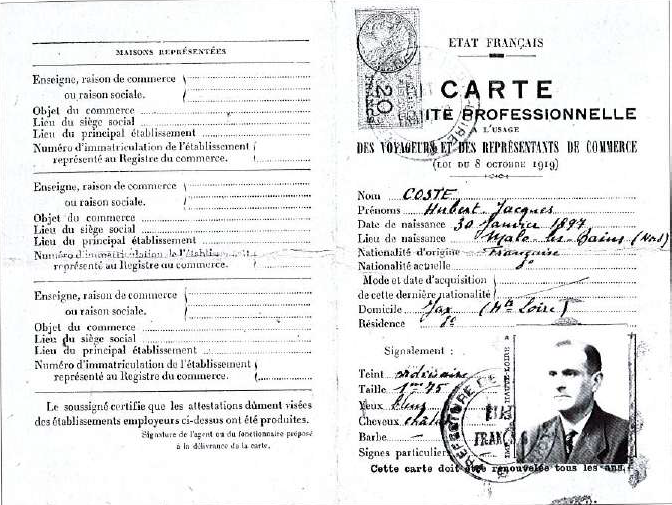 MAISONS REPRÉSENTÉES
Enseigne, raison de commerce
ou raison sociale.
Objet du commerce
Lieu du siège social
Lieu du principal établissement
Numéro d'immatriculation de l'établissement
représenté au Registre du commerce.
Enseigne, raison de commerce
ou raison sociale.
Objet du commerce
Lieu du siège social
Lieu du principal établissement
Numéro d'immatriculation de l'établissement
représenté au Registre du commerce.
Enseigne, raison de commerce
ou raison sociale.
Objet du commerce
Lieu du siège social
Lieu du principal établissement
Numéro d'immatriculation de l'établissement
représenté au Registre du commerce.
Le soussigné certifie que les attestations dûment visées
des établissements employeurs ci-dessus ont été produites.
Signature de l'agent ou du fonctionnaire préposé
à la délivrance de la carte.
20
FRANCS
ETAT FRANÇAIS
CARTE
PROFESSIONNELLE
A L'USAGE
DES VOYAGEURS ET DES REPRÉSENTANTS DE COMMERCE
(LOI DU 8 OCTOBRE 1919)
Nom COSTE
Prénoms Hubert Jacques
Date de naissance 30 Janvier 1897
Lieu de naissance Malo-les-Bains (Nord)
Nationalité d'origine Française
Nationalité actuelle do
Mode et date d'acquisition
de cette dernière nationalité
Domicile Jax (Hte Loire)
Résidence do
Signalement :
Teint
Taille 1m75
Yeux bleus
Cheveux
Barbe —
Signes particuliers
Cette carte doit être renouvelée tous les ans.
PREFECTURE DE
HAUTE-LOIRE
ETAT
FRANÇAIS